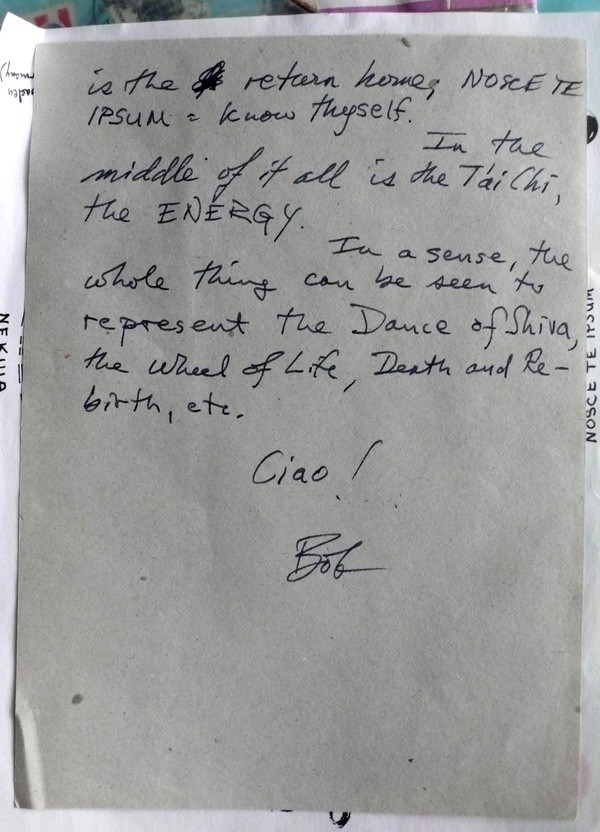 is the return home; NOSCE TE
IPSUM = know thyself.
In the
middle of it all is the T'ai Chi,
the ENERGY.
In a sense, the
whole thing can be seen to
represent the Dance of Shiva,
the Wheel of Life, Death and Re-
birth, etc.
Ciao!
Bob
NOSCE TE IPSUM
NEKUIA